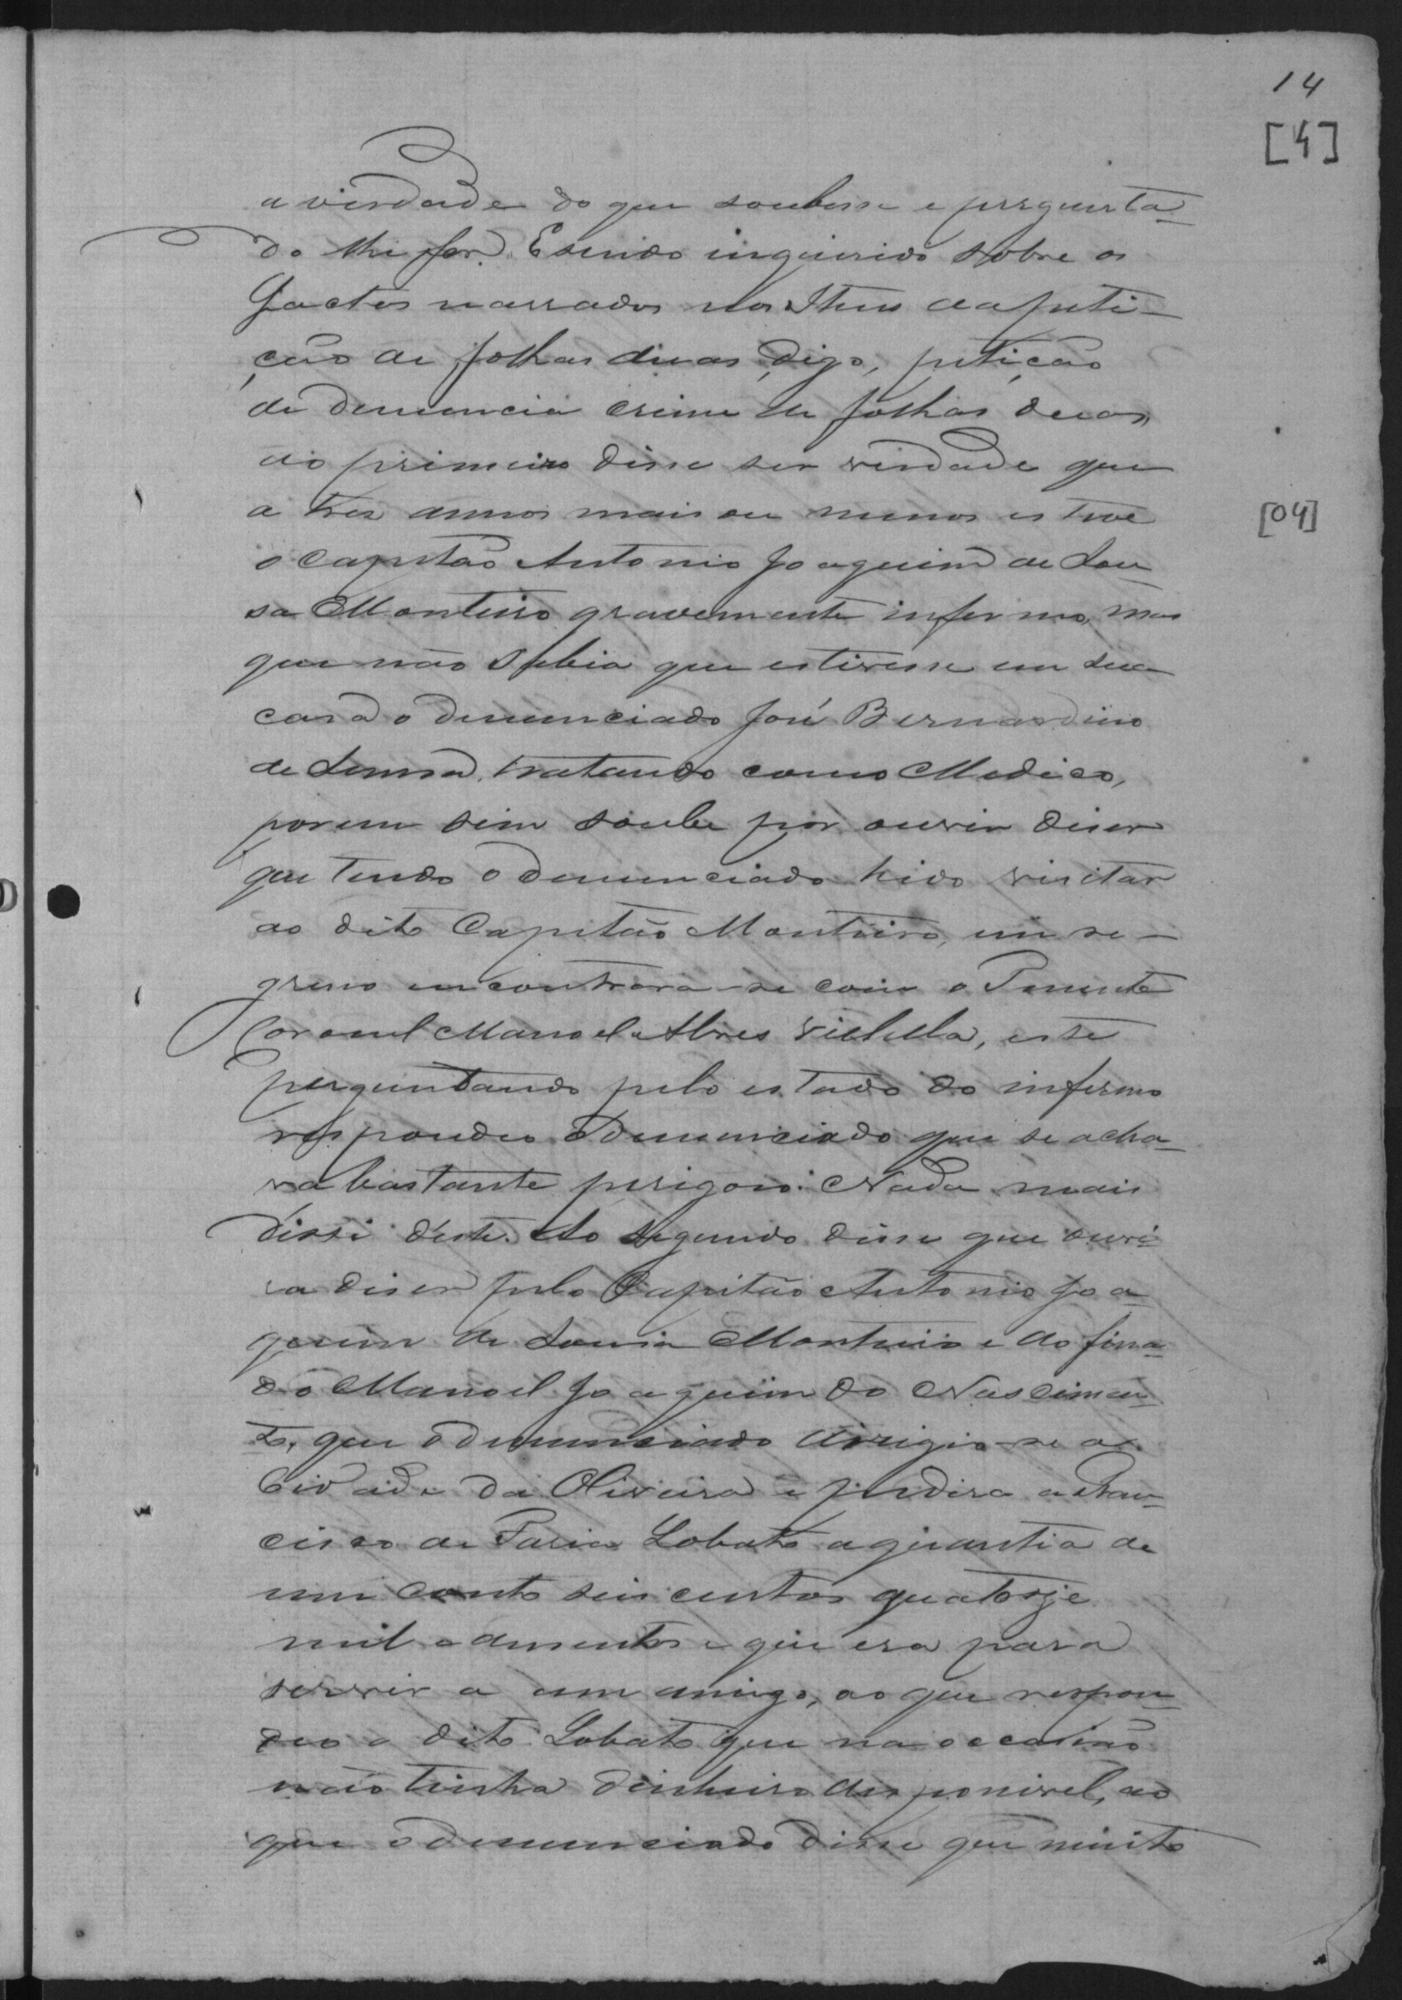 14
[4]
a verdade do que soubesse e pergunta-
do lhe for. E sendo inquirido sobre os
factos narrados nos Itens da peti-
ção de folhas duas, digo, petição
de denuncia crime de folhas duas,
ao primeiro disse ser verdade que
a tres annos mais ou menos esteve
[04]
o Capitão Antonio Joaquim de Sou-
sa Monteiro gravemente infermo, mas
que não sabia que estivesse em sua
casa o denunciado José Bernardino
de Sousa, tratando como Medico,
porem sim soube por ouvir diser
que tendo o denunciado hido visitar
ao dito Capitão Monteiro, em re-
greso encontrara-se com o Tenente
Coronel Manoel Alves Vilella, este
perguntando pelo estado do infermo
respondeo o denunciado que se acha-
va bastante perigoso. Nada mais
dissi d'este. Ao segundo disse que ouvi-
ra diser pelo Capitão Antonio Joa-
quim de Sousa Monteiro e do fina-
do Manoel Joaquim do Nascimen-
to, que o denunciado dirigio-se a
Cidade da Oliveira e pedira a Fran-
cisco de Faria Lobato a quantia de
um conto seis centos quatorze
mil e dusentos e que era para
servir a um amigo, ao que respon-
deo o dito Lobato que na occasião
não tinha dinheiro disponivel, ao
que o denunciado disse que muito